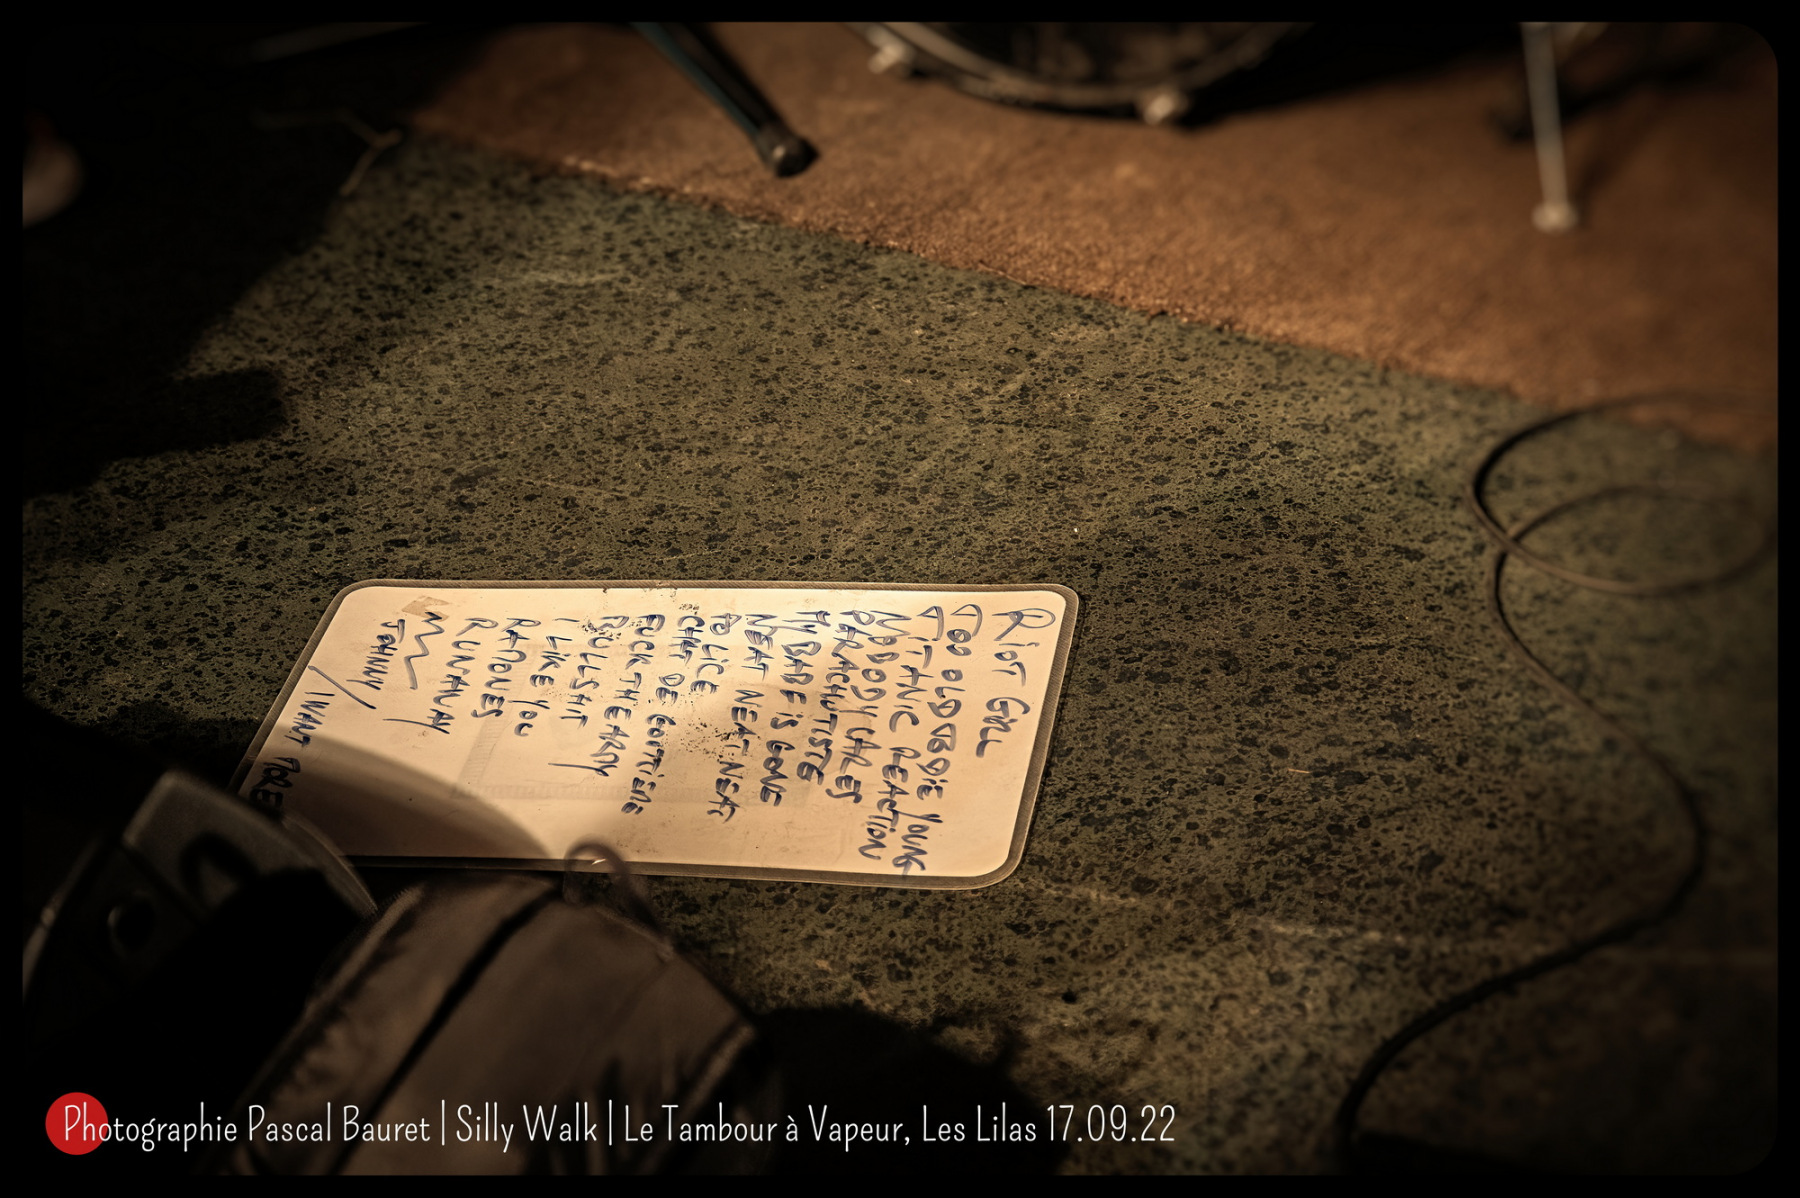 RiOT GRLL
TOO OLD TO DiE YOUNG
TiTANIC REACTION
NOBODY CARES
PARACHUTISTE
MY BABE iS GONE
NEAT NEAT NEAT
POLICE
CHAT DE GOUTTIERE
FUCK THE
BULLSHIT
I LIKE YOU
RAMONES
RUNAWAY
JOHNNY / I WANT MORE
Photographie Pascal Bauret | Silly Walk | Le Tambour à Vapeur, Les Lilas 17.09.22